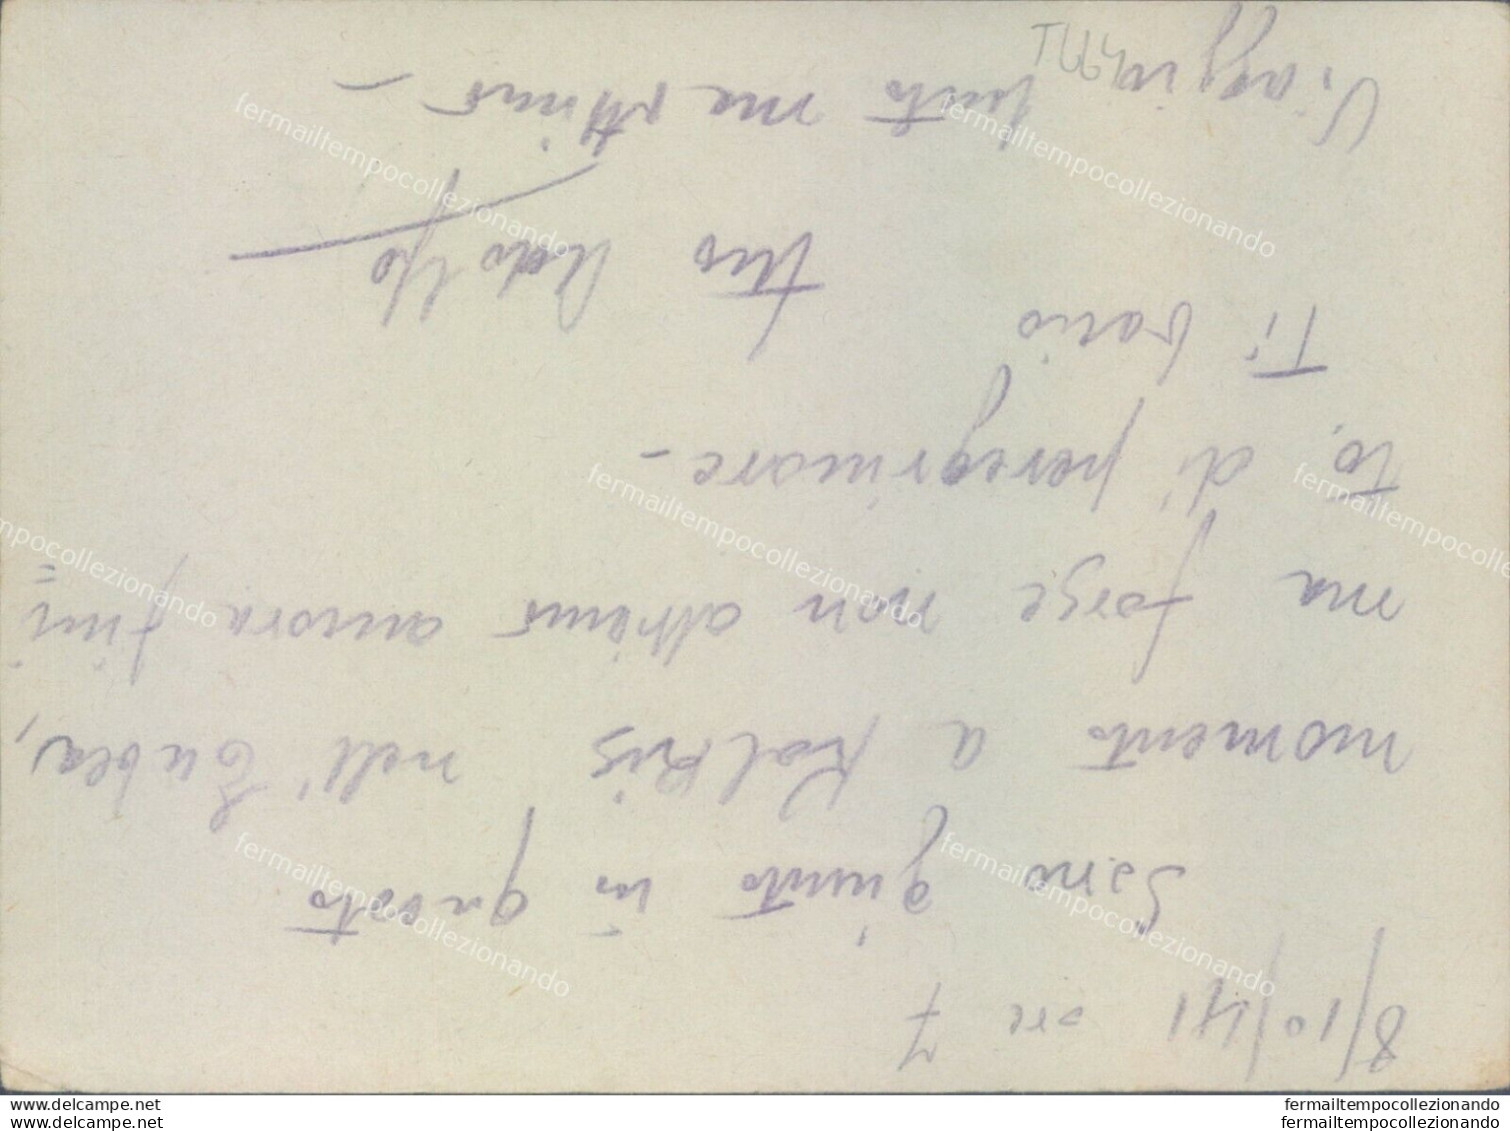 8/10/41 ore 7
Sono giunto in questo
momento a Kalkis nell'Eubea,
ma forse non abbiamo ancora fini=
to, di peregrinare-
Ti bacio
tuo Adolfo
Viaggio lento ma ottimo-
fermailtempocollezionando
www.delcampe.net
www.delcampe.net
fermailtempocollezionando
fermailtempocollezionando